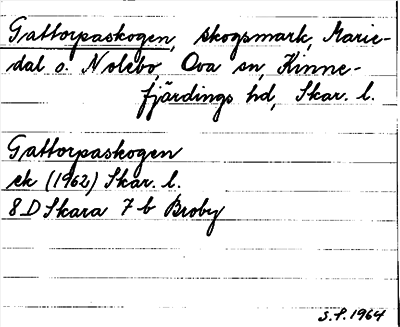 Gattorpaskogen, skogsmark, Marie-
dal o. Nolebo, Ova sn, Kinne-
fjärdings hd, Skar. l.
Gattorpaskogen
ek (1962) Skar. l.
8 D Skara 7 b Broby
S.F. 1964